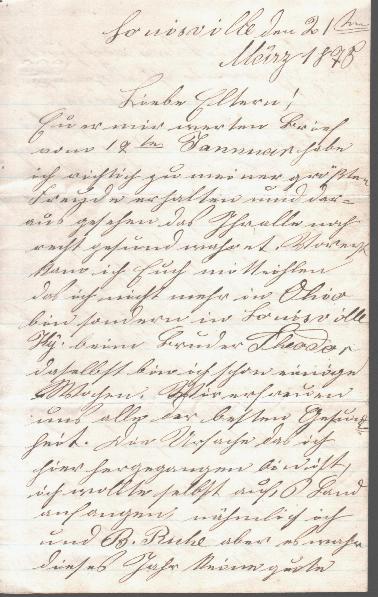 Louisville den 21ten
März 1875
Liebe Eltern!
Euer mir werten Brief
vom 18ten Jannuar habe
ich richtich zu meiner größten
Freude erhalten und dar=
aus gesehen das Ihr alle noch
recht gesund wahret. Vorerst
kann ich Euch mittheihlen
das ich nicht mehr in Ohio
bin sondern in Louisville
Ky. beim Bruder Theodor
daselbst bin ich schon einige
Wochen. Wir erfreuen
uns alle der besten Gesund=
heit. Die Ursache das ich
hier hergegangen bin ist,
ich wollte selbst aufs Land
anfangen, nähmlich ich
und B. Ruhe aber es wahr
dieses Jahr keine gute